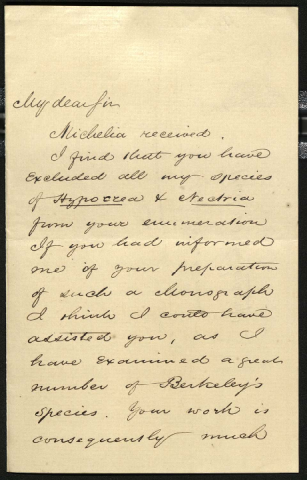 My dear Sir
Michelia received.
I find that you have
Excluded all my species
of Hypocrea & Nectria
from your enumeration
If you had informed
me of your preparation
of such a Monograph
I think I could have
assisted you, as I
have Examined a great
number of Berkeley's
Species. Your work is
consequently much